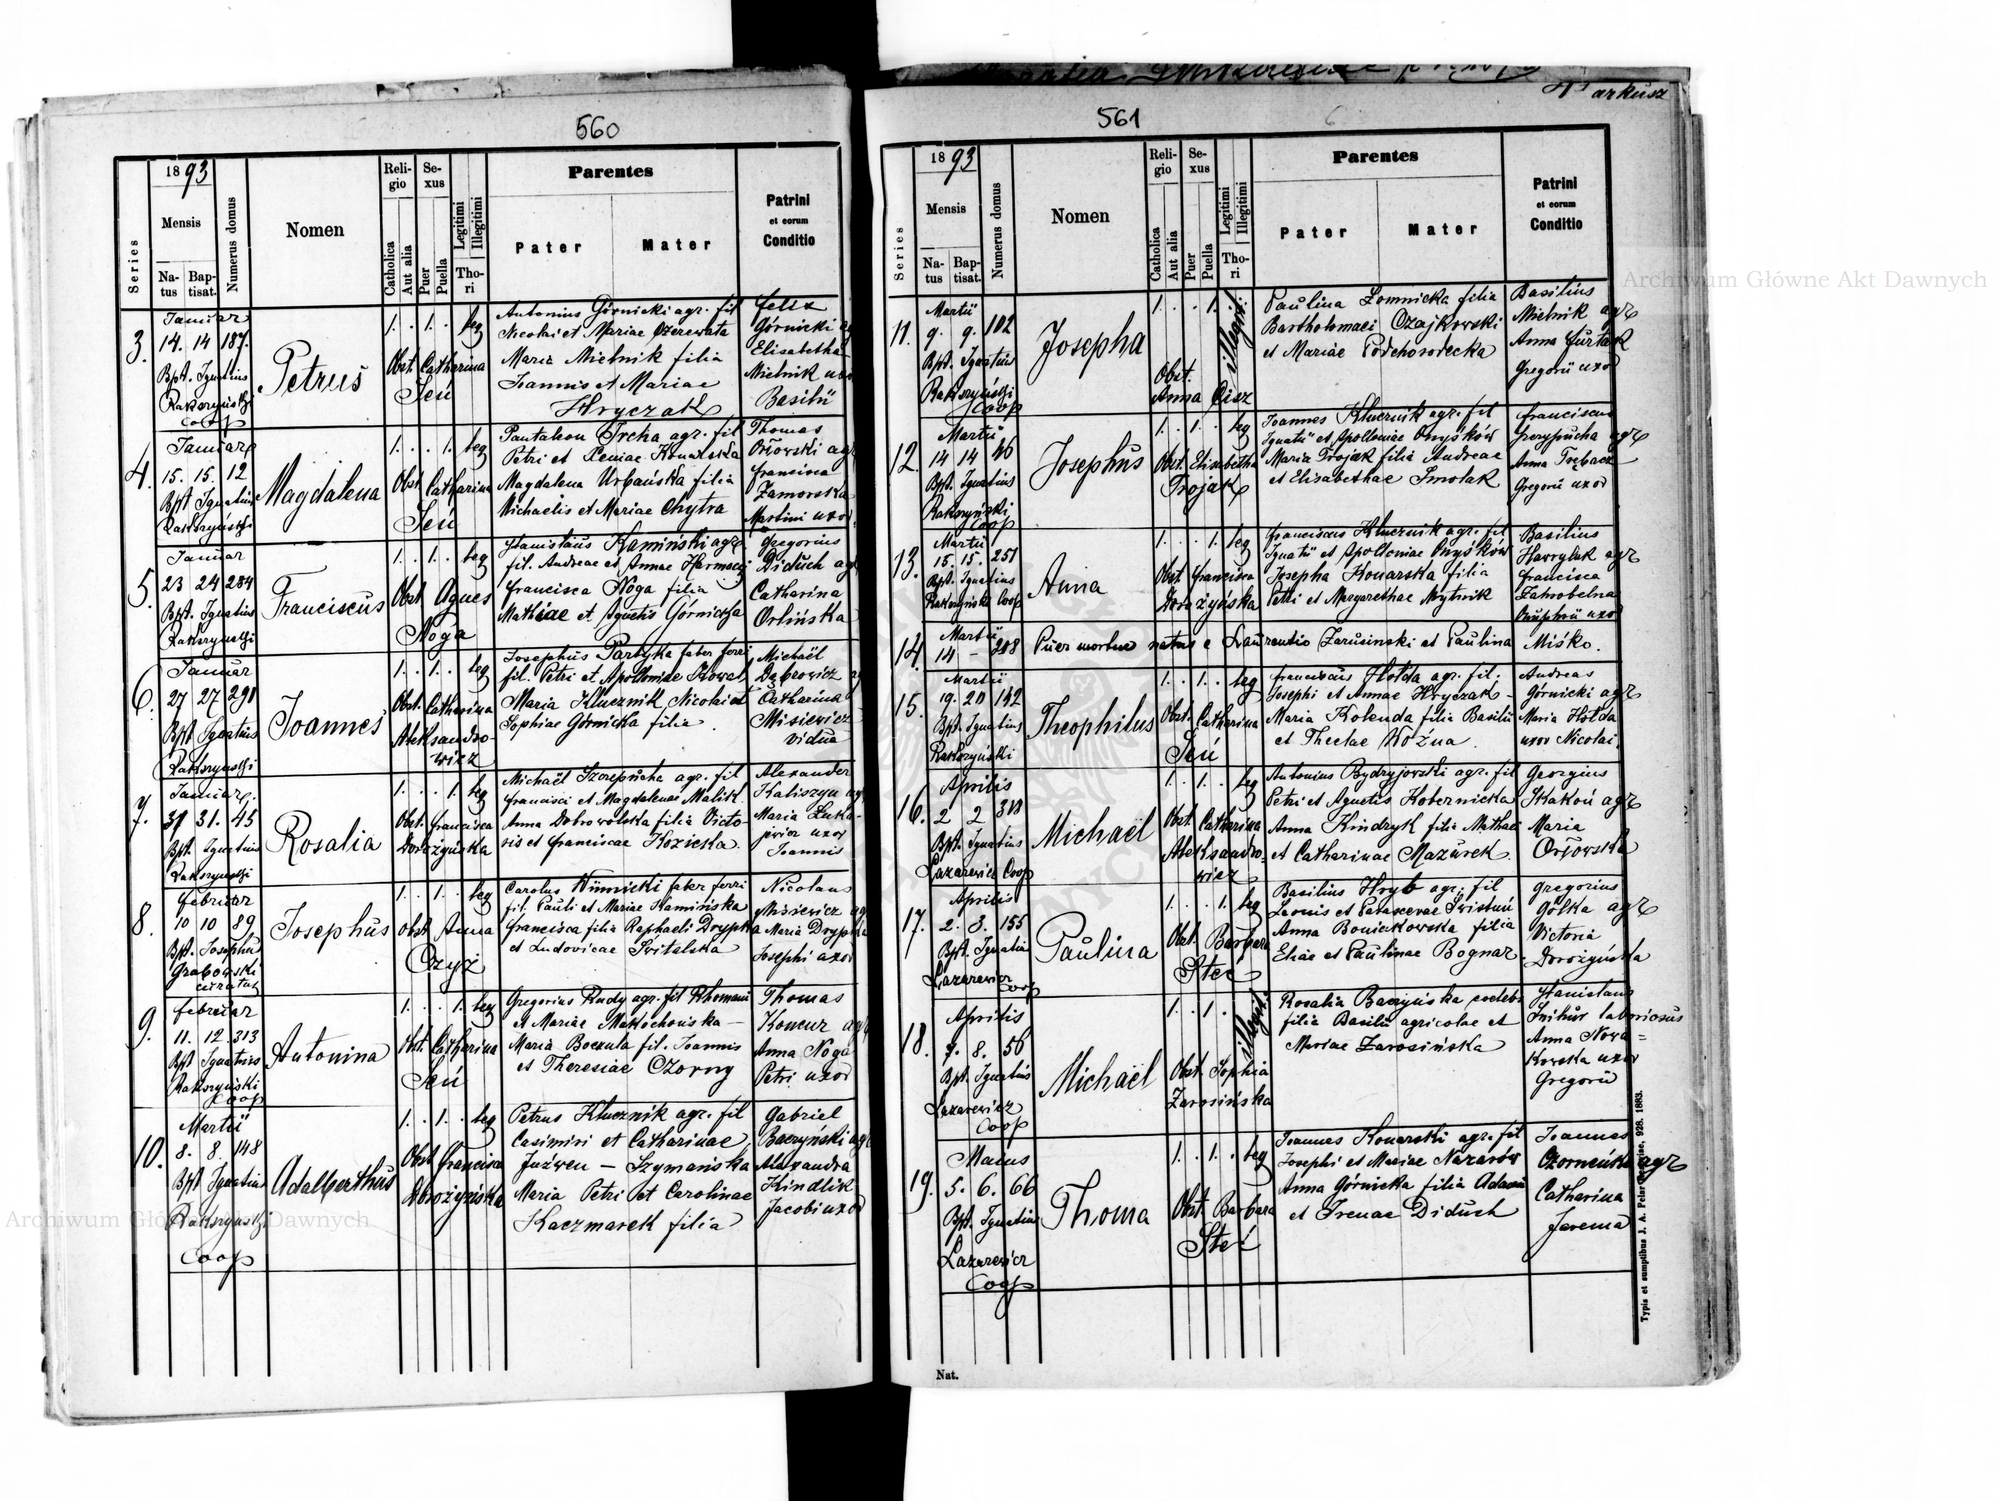 arkusz
560
1893
Mensis
Natus
Baptisat.
Series
Numerus domus
Nomen
Religio
Catholica
Aut alia
Sexus
Puer
Puella
Legitimi
Illegitimi
Thori
Parentes
Pater
Mater
Patrini
et eorum
Conditio
3.
Januar
14. 14 187.
Bpt. Ignatius
Rakszyński
Coop
Petrus
1. . 1. . leg
Obst. Catharina
Seń
Antonius Górnicki agr. fil
Nicolai et Mariae Czerewata
Maria Mielnik filia
Joannis et Mariae
Hryczak
Felix
Górnicki ag
Elisabetha
Mielnik uxo
Basilii
4.
Januar
15. 15. 12
Bpt. Ignatius
Rakszyński
Magdalena
1. . . 1. leg
Obst Catharina
Seń
Pantaleon Ircha agr. fil
Petri et Xeniae
Magdalena Urbańska filia
Michaelis et Mariae Chytra
Thomas
Orłowski agr
Francisca
Zamorska
Martini uxor
5.
Januar
23 24 284
Bpt. Ignatius
Rakszyński
Franciscus
1. . 1. . leg
Obst Agnes
Noga
Stanislaus Kamiński agr.
fil. Andreae et Annae
Francisca Noga filia
Mathiae et Agnetis Górnicka
Gregorius
Diduch ag
Catharina
Orlińska
6.
Januar
27 27 290
Bpt Ignatius
Rakszyński
Joannes
1. . 1. . leg
Obst. Catharina
Aleksandro-
wicz
Josephus Partyka faber ferri
fil. Petri et Apolloniae Kowal
Maria Klucznik Nicolai et
Sophiae Górnicka filia
Michaël
Dąbrowicz
Catharina
Misiewicz
vidua
7.
Januar.
31 31. 45
Bpt. Ignatius
Rakszyński
Rosalia
1. . . 1. leg
Obst. Francisca
Dorożyńska
Michaël Szczepucha agr. fil
Francisci et Magdalenae Malik.
Anna Dobrowolska filia Victo-
ris et Franciscae Kozicka
Alexander
Kaliszyn ag
Maria Łuka-
uxor
Joannis
8.
Februar
10 10 89
Bpt. Josephus
Grabowski
curatus
Josephus
1. . 1. . leg
Obst Anna
Czyż
Carolus Winnicki faber ferri
fil. Pauli et Mariae Kamińska
Francisca filia Raphaeli Drypka
et Ludovicae Switalska
Nicolaus
Misiewicz ag
Maria Drypka
Josephi uxor
9.
Februar
11. 12. 313
Bpt Ignatius
Rakszyński
Coop
Antonina
1. . . 1. leg
Obst. Catharina
Seń
Gregorius Rudy agr. fil Thomae
et Mariae
Maria Boczula fil. Joannis
et Theresiae Czorny
Thomas
Koncur agr
Anna Noga
Petri uxor
10.
Martii
8. 8. 148
Bpt Ignatius
Rakszyński
Coop
Adalberthus
1. . 1. . leg
Obst Francisca
Dorożyńska
Petrus Klucznik agr. fil
Casimiri et Catharinae
Juźwen — Szymańska
Maria Petri et Carolinae
Kaczmarek filia
Gabriel
Baczyński agr
Alexandra
Kindlik
Jacobi uxor
561
1893
Mensis
Natus
Baptisat.
Series
Numerus domus
Nomen
Religio
Catholica
Aut alia
Sexus
Puer
Puella
Legitimi
Illegitimi
Thori
Parentes
Pater
Mater
Patrini
et eorum
Conditio
11.
Martii
9. 9. 102
Bpt. Ignatius
Rakszyński
Coop
Josepha
1. . . 1. illegit.
Obst.
Anna Cisz
Paulina Łomnicka filia
Bartholomaei Czajkowski
et Mariae Podchorodecka
Basilius
Mielnik agr
Anna Furtak
Gregorii uxor
12.
Martii
14 14 46
Bpt. Ignatius
Rakszyński
Coop
Josephus
1. . 1. . leg
Obst. Elisabetha
Trojak
Joannes Klucznik agr. fil
Ignatii et Apolloniae Onyśków
Maria Trojak filia Andreae
et Elisabethae Smolak
Franciscus
agr
Anna Trębacz
Gregorii uxor
13.
Martii
15. 15. 251
Bpt. Ignatius
Rakszyński Coop
Anna
1. . . 1. leg
Obst. Francisca
Dorożyńska
Franciscus Klucznik agr. fil
Ignatii et Apolloniae Onyśków
Josepha Konarska filia
Petri et Margarethae Mytnik
Basilius
Hawryluk agr
Francisca
Zahrobelna
Onuphrii uxor
14.
Martii
14 — 208
Puer mortuo natus e Laurentio Zarusinski et Paulina Miśko.
15.
Martii
19. 20 142
Bpt. Ignatius
Rakszyński
Theophilus
1. . 1. . leg
Obst. Catharina
Seń
Franciscus Hołda agr. fil.
Josephi et Annae Hryczak
Maria Kolenda filia Basilii
et Theclae Koźna
Andreas
Górnicki agr
Maria Hołda
uxor Nicolai
16.
Aprilis
2 2 310
Bpt. Ignatius
Lazarewicz Coop
Michaël
1. . 1. . leg
Obst. Catharina
Aleksandro-
wicz
Antonius Bydryjowski agr. fil
Petri et Agnetis Kobernicka
Anna Kindryk filia Mathaei
et Catharinae Mazurek
Georgius
Skakoń agr
Maria
Orłowska
17.
Aprilis
2. 3. 155
Bpt. Ignatius
Lazarewicz
Coop
Paulina
1. . . 1. leg
Obst. Barbara
Steć
Basilius Hryb agr. fil
Leonis et Parascevae Świstuń
Anna Boniakowska filia
Eliae et Paulinae Bognar
Gregorius
Gołka agr
Victoria
Dorożyńska
18.
Aprilis
7. 8. 56
Bpt. Ignatius
Lazarewicz
Coop
Michaël
1. . 1. . illegit.
Obst. Sophia
Zarosińska
Rosalia Baczyńska coelebs
filia Basilii agricolae et
Mariae Zarosińska
Stanislaus
Snihur laboriosus
Anna Nowa=
kowska uxor
Gregorii
19.
Maius
5. 6. 66
Bpt. Ignatius
Lazarewicz
Coop
Thoma
1. . 1. . leg
Obst Barbara
Steć
Joannes Konarski agr. fil
Josephi et Mariae Nazarów
Anna Górnicka filia Adami
et Irenae Diduch
Joannes
agr
Catharina
Jarema
Nat.
Typis et sumptibus J. A. Pelar Rzeszoviae, 928. 1883.
Archiwum Główne Akt Dawnych
Archiwum Główne Akt Dawnych